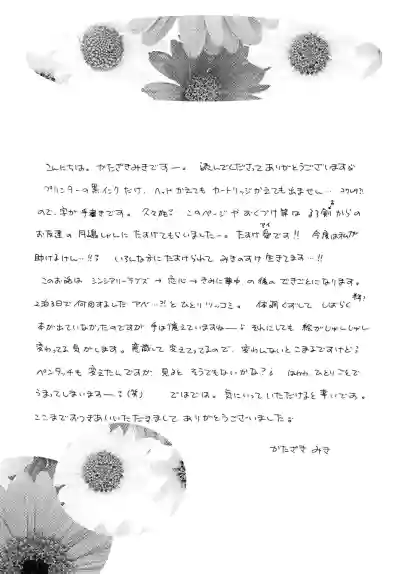 こんにちは。かたざきみきですー。 読んでくださってありがとうございます♪
プリンターの黒インクだけ、ヘッドかえてもカートリッジかえても出ません…
ので、字が手書きです。 このページやおくづけ等は からの
お友達の月島しゃんにたすけてもらいましたー。たすけ愛です!! 今度は私が
助けまけん…!! いろんな方にたすけられてみきのすけ生きてます…!!
このお話はシンシアリーラブズ→恋心→きみに夢中の後のできごとになります。
2泊3日で何回すましたアベ…?!とひとりツッコミ。 体調くずしてしばらく
本が出ていなかったのですが手は覚えていますねー♪ それにしても絵がじゃんじゃん
変わってる気がします。意識して変えてってるので、変わんないとこまるですけど♪
ペンタッチも変えたんですが、見るとそうでもないかな?♪ ひとりごとで
うまってしまいますー♪(笑) ではでは。気にいっていただけると幸いです。
ここまでおつきあいいただきましてありがとうございました♪
かたざき みき